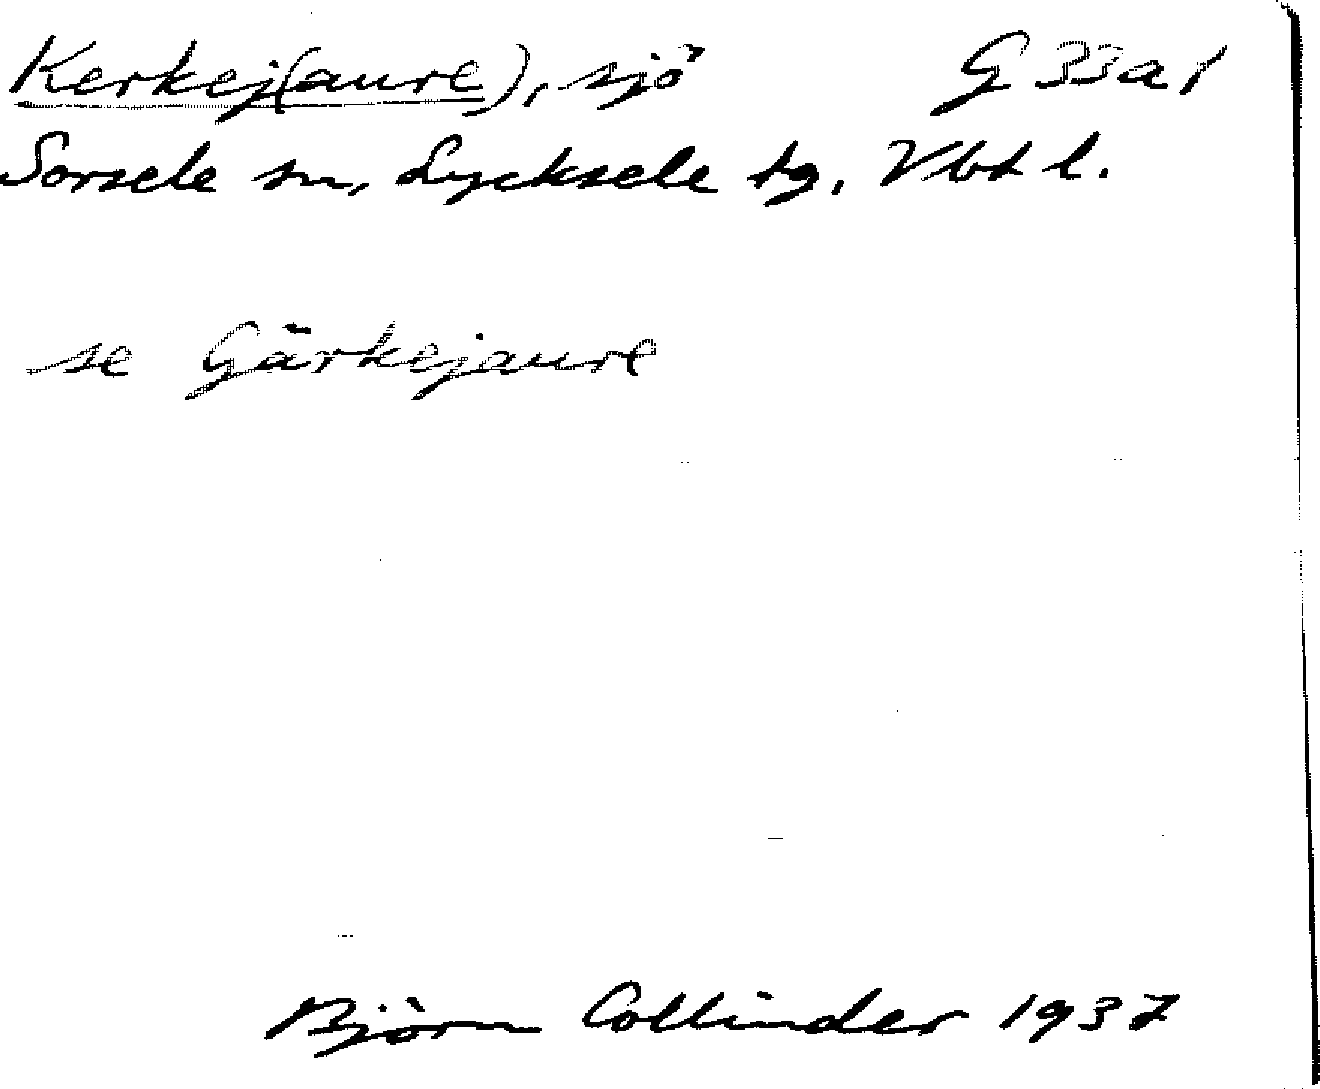 Kerkej(aure), sjö G 33a1
Sorsele sn, Lycksele tg, Vbt l.
se Gärkejaure
Björn Collinder 1937